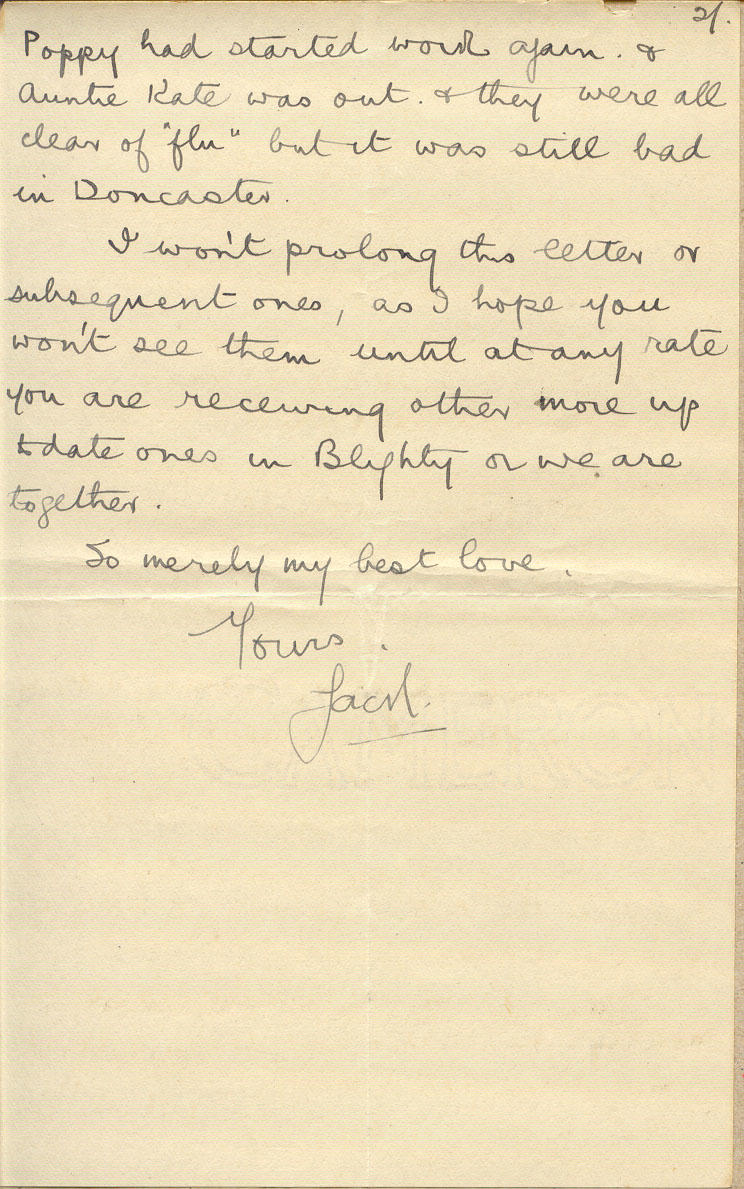 2/.
Poppy had started work again. &
Auntie Kate was out. & they were all
clear of "flu" but it was still bad
in Doncaster.
I won't prolong this letter or
subsequent ones, as I hope you
won't see them until at any rate
you are receiving other more up
to date ones in Blighty or we are
together.
So merely my best love.
Yours.
Jack.